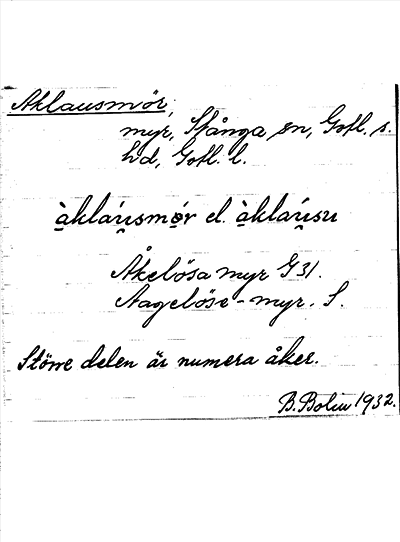 Aklausmör,
myr, Stånga sn, Gotl. s.
hd, Gotl. l.
àklau̯smör el. àklau̯su
Åkelösa myr G 31.
Aagelöse-myr. S.
Större delen är numera åker.
B. Bolin 1932.